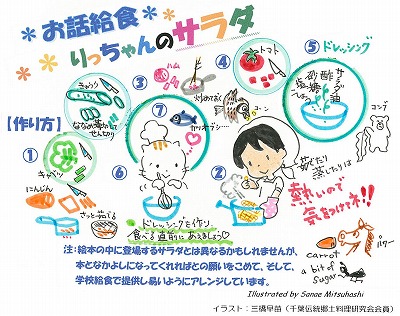 ＊お話給食＊
＊りっちゃんのサラダ
【作り方】
①
キャベツ
にんじん
さっと茹でる
きゅうり
ななめ薄切りで
せん切り
③
ハム
炒めておく
⑦
カツオブシ…
④
トマト
コーン
⑤ドレッシング
塩
こしょう
砂糖
酢
サラダ油
コンブ
⑥
②
茹でたり
蒸したりは
熱いので
気をつけてネ!!
ドレッシングを作り
食べる直前にあえましょう♡
carrot
a bit of
sugar
パワー
注：絵本の中に登場するサラダとは異なるかもしれませんが、
本となかよしになってくれればとの願いをこめて、そして、
学校給食で提供し易いようにアレンジしています。
Illustrated by Sanae Mitsuhashi
イラスト：三橋早苗（千葉伝統郷土料理研究会会員）